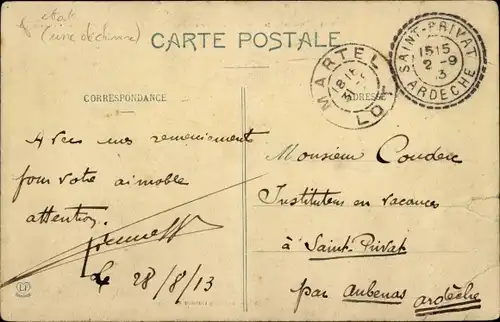 état
(une déchirure)
CARTE POSTALE
MARTEL
LOT
SAINT-PRIVAT
15 15
2 -9
13
ARDÈCHE
CORRESPONDANCE
ADRESSE
Avec mes remerciements
pour votre aimable
attention.
Le 28/8/13
Monsieur Couderc
Instituteur en vacances
à Saint-Privat
par Aubenas
ardèche